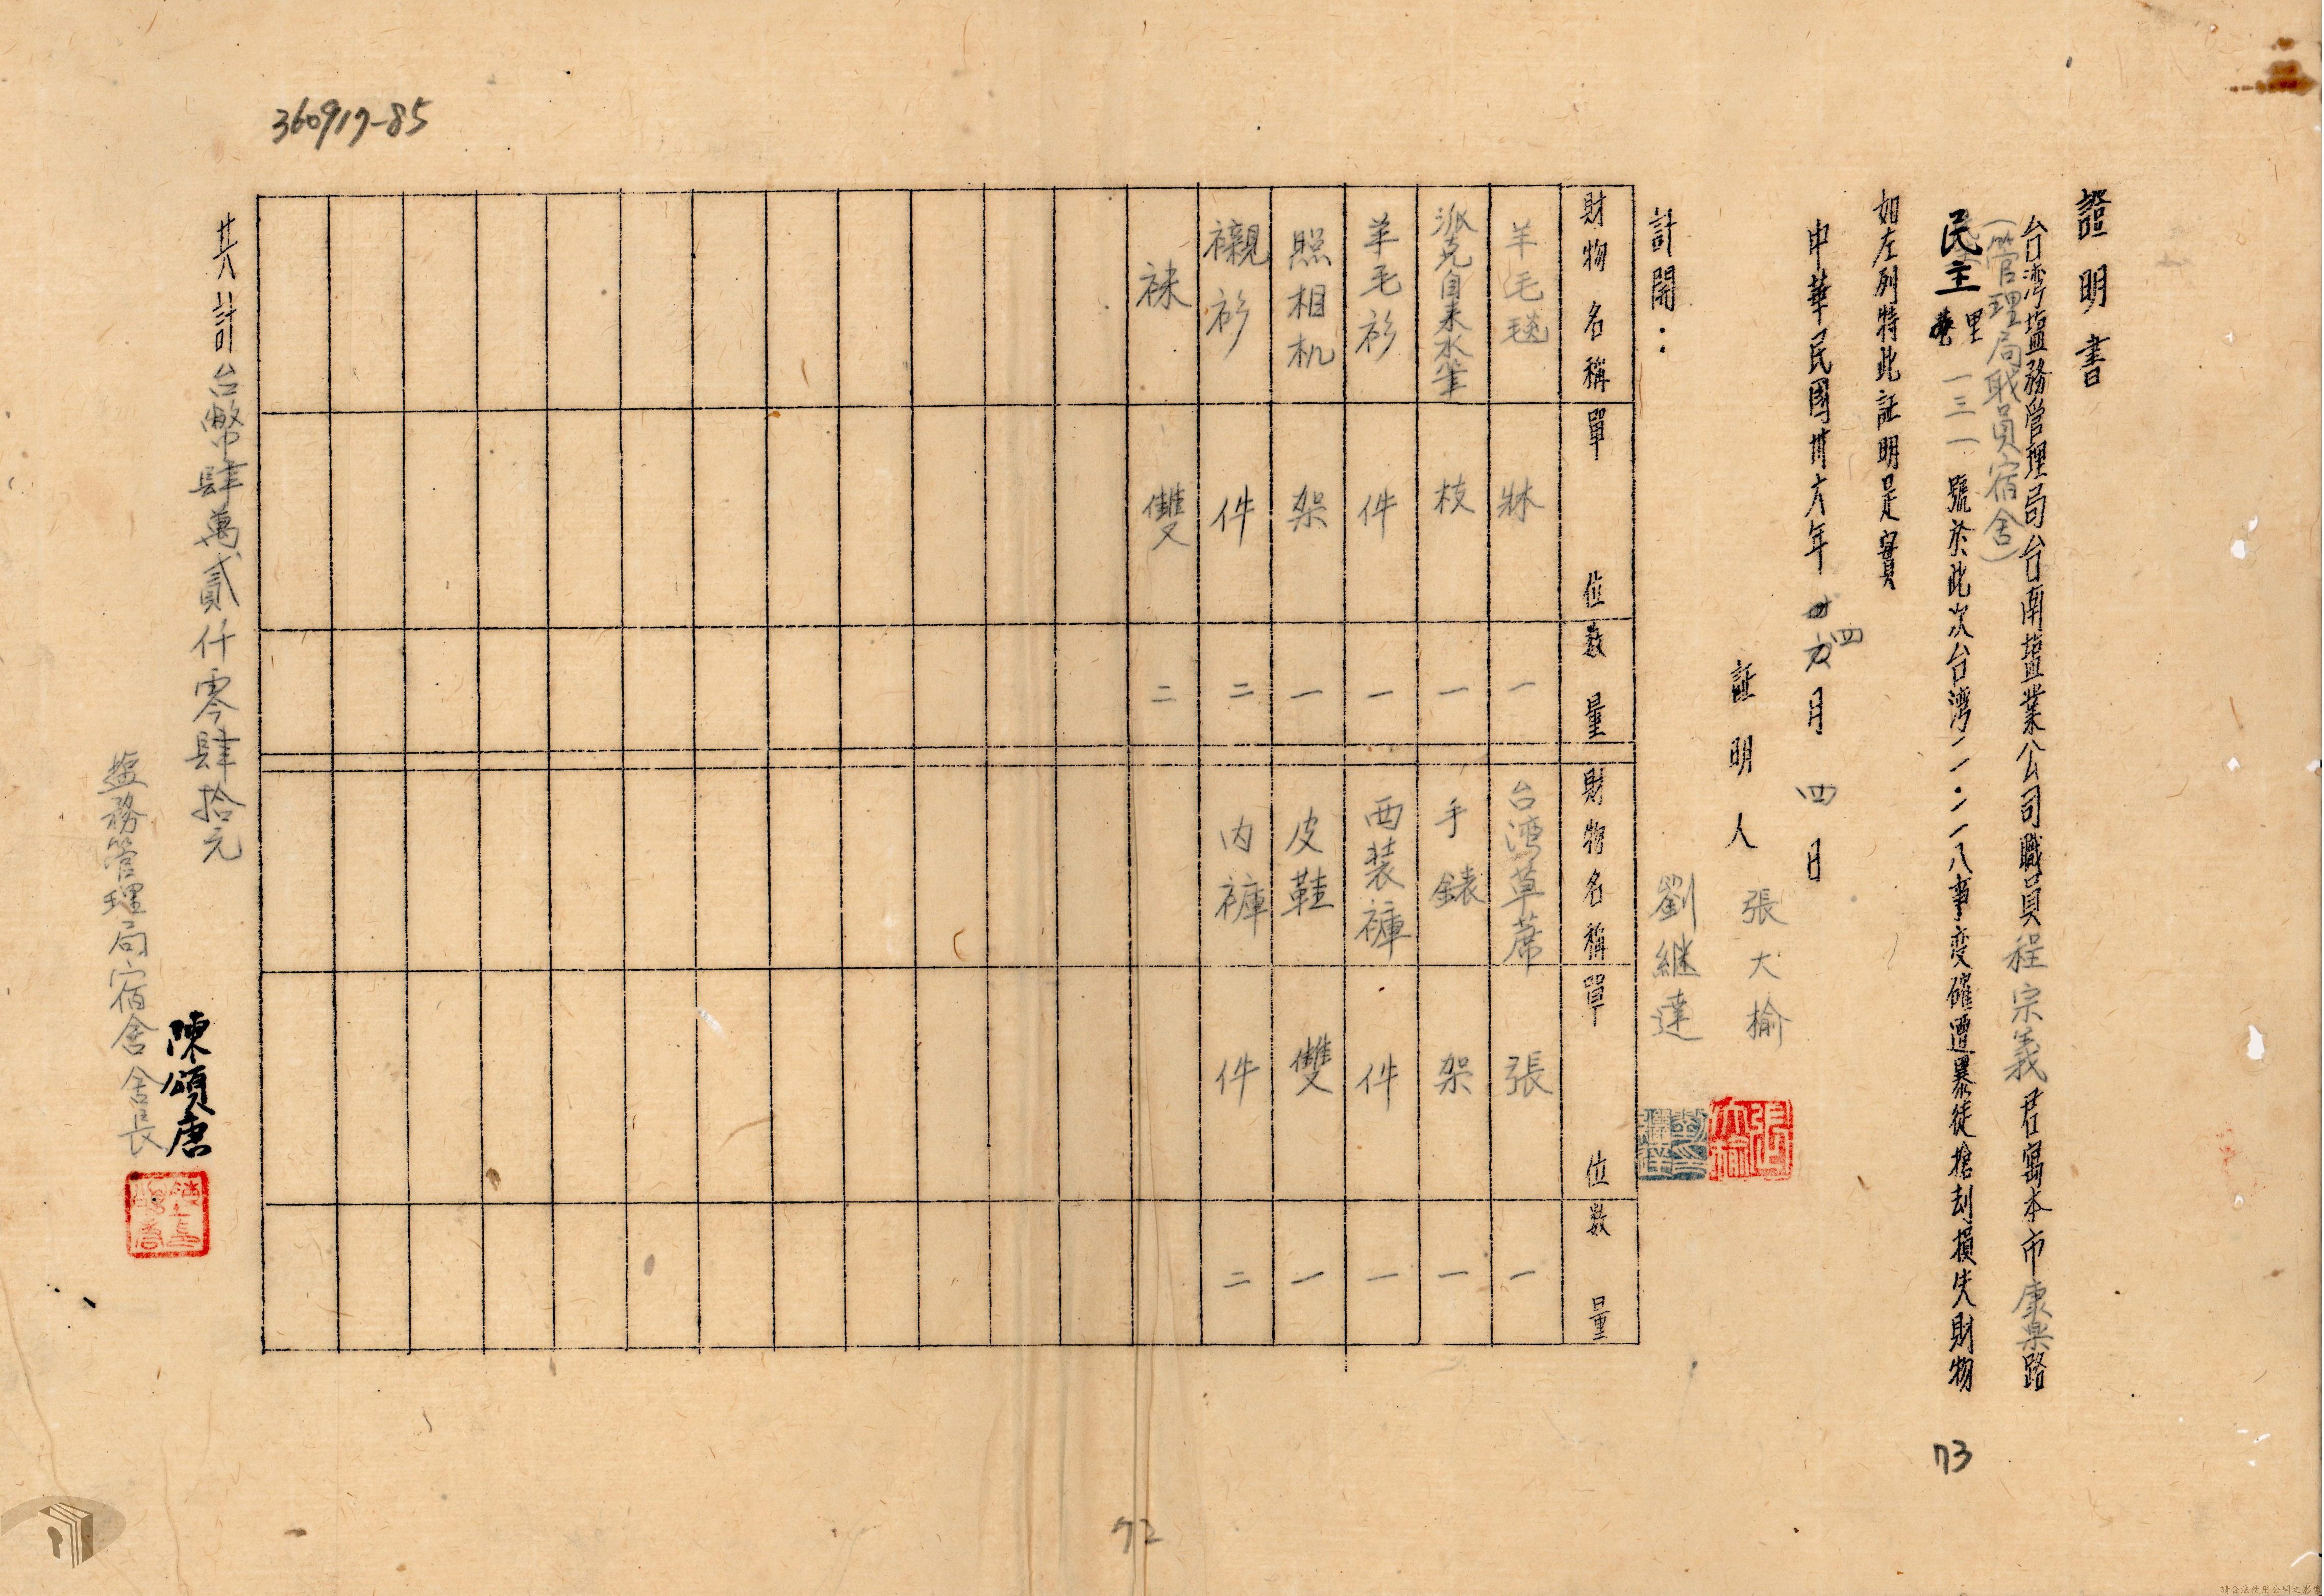 證明書
台湾塩務管理局台南塩業公司職員程宗義君寓本市康樂路
(管理局職員宿舍)
民主里一三一號於此次台湾二·二八事变確遭暴徒搶刦損失財物
如左列特此証明是實
中華民國卅六年四月四日
証明人 張大榆
劉繼達
計開：
財物名稱 單位 数量 財物名稱 單位 数量
羊毛毯 牀 一 台湾草蓆 張 一
派克自来水筆 枝 一 手錶 架 一
羊毛衫 件 一 西装褲 件 一
照相机 架 一 皮鞋 雙 一
襯衫 件 二 内褲 件 二
袜 雙 二
共計台幣肆萬貳仟零肆拾元
陳頌唐
塩務管理局宿舍舍長
360917-85
73
72